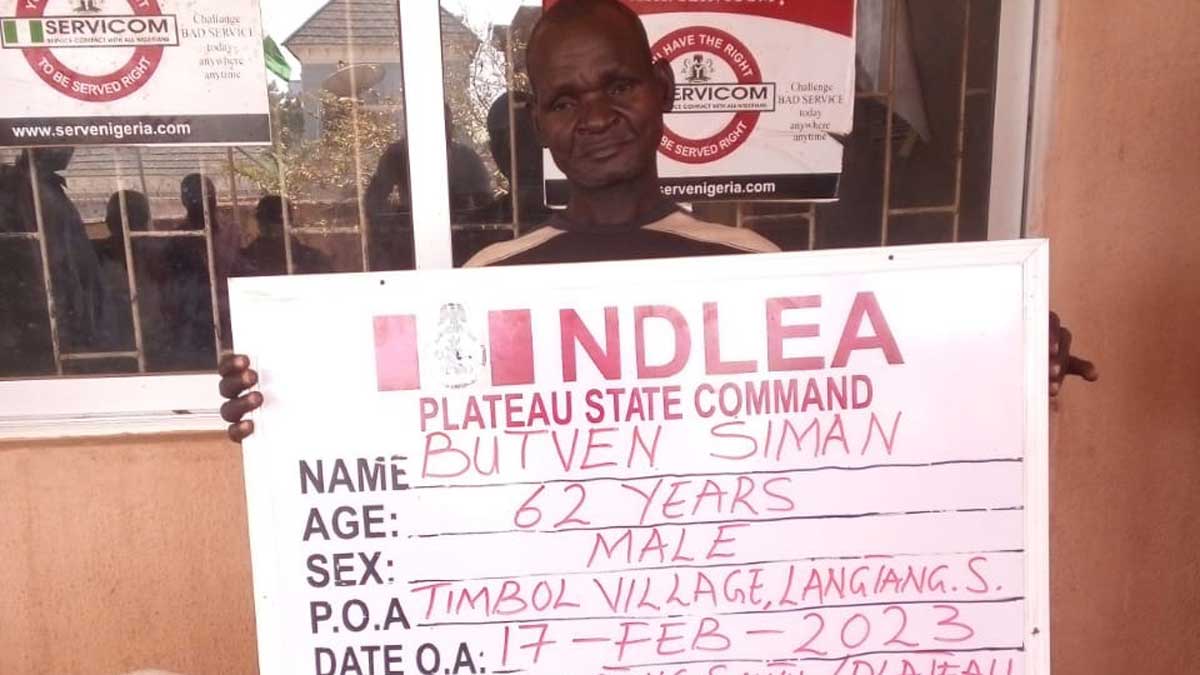 SERVICOM
SERVICE COMPACT WITH ALL NIGERIANS
TO BE SERVED RIGHT
Challenge
BAD SERVICE
today
anywhere
anytime
www.servenigeria.com
HAVE THE RIGHT
ERVICOM
COMPACT WITH ALL NIGERIANS
BE SERVED RIGHT
Challenge
BAD SERVICE
today
anywhere
anytime
servenigeria.com
NDLEA
PLATEAU STATE COMMAND
NAME BUTVEN SIMAN
AGE: 62 YEARS
SEX: MALE
P.O.A TIMBOL VILLAGE, LANGTANG.S.
DATE O.A: 17-FEB-2023